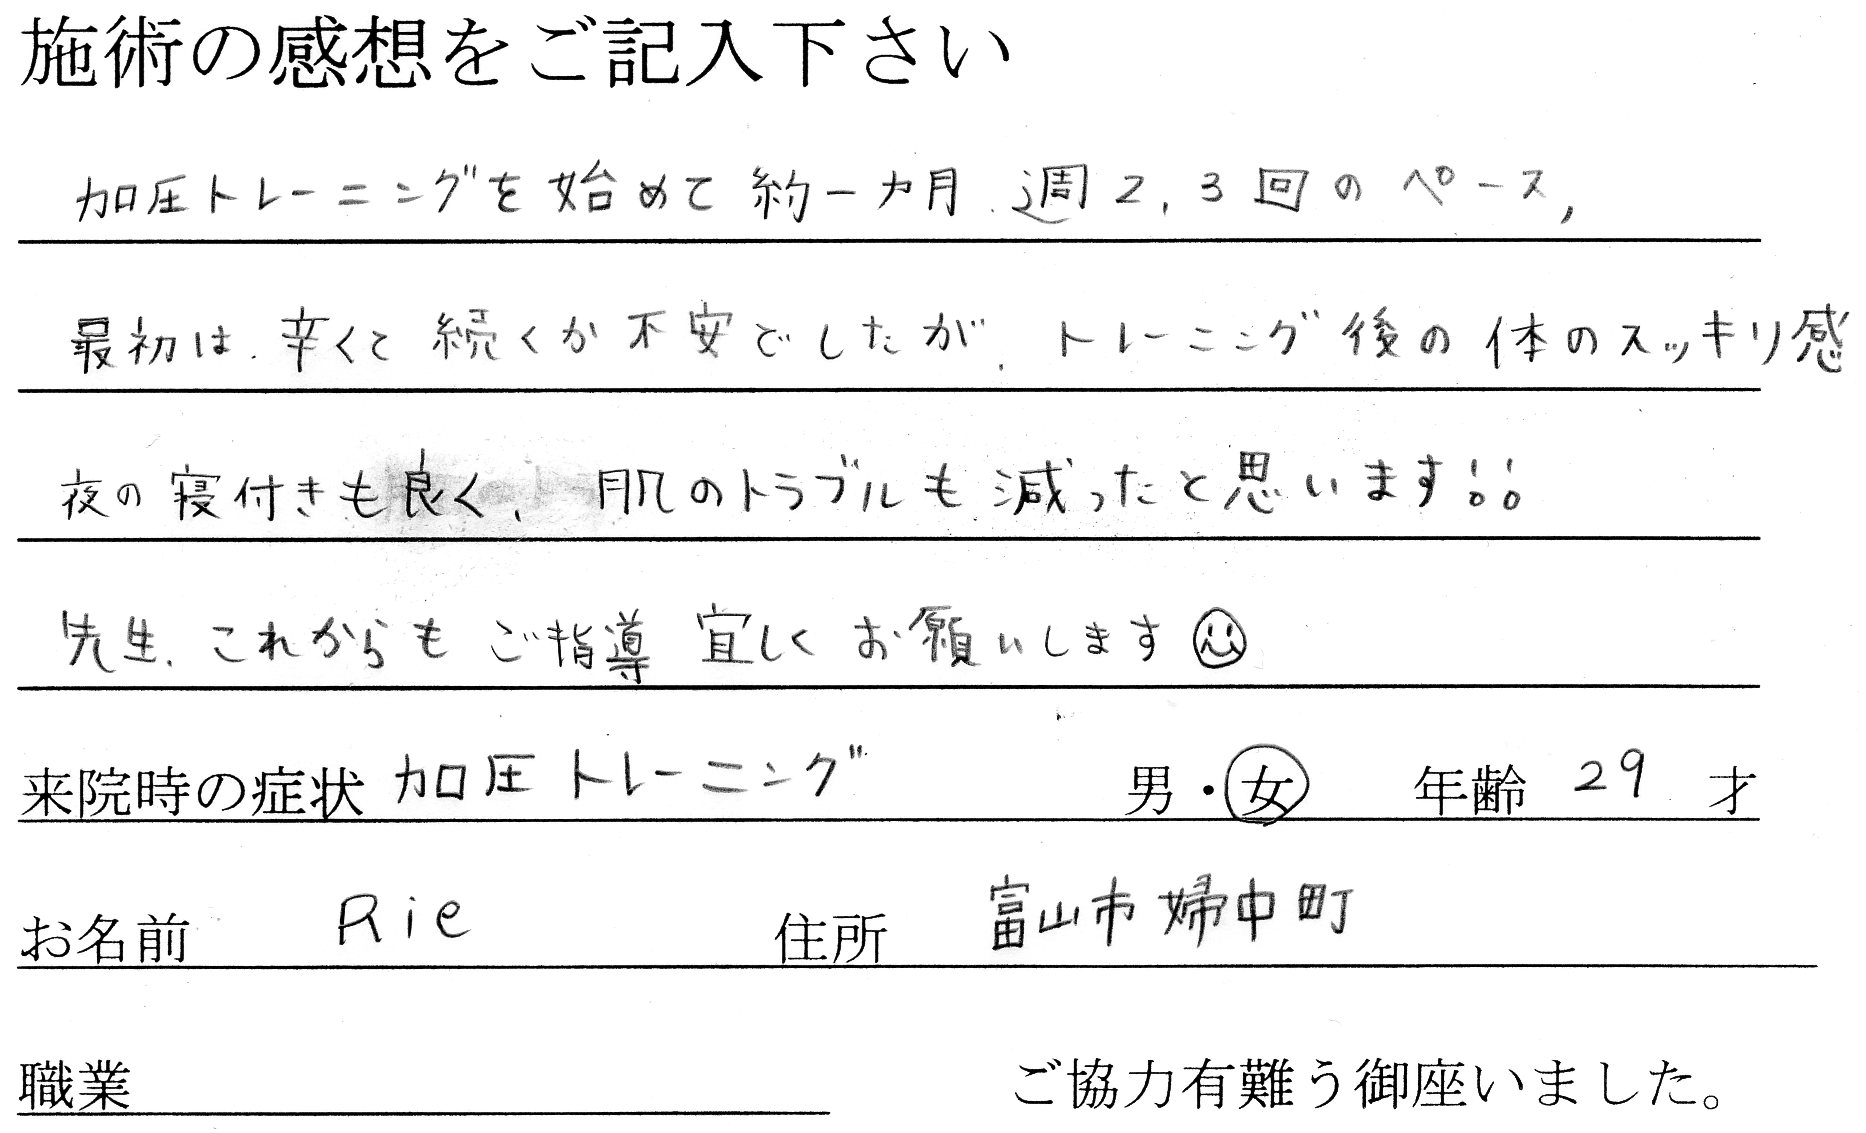 施術の感想をご記入下さい
加圧トレーニングを始めて約一カ月、週2,3回のペース,
最初は、辛くて続くか不安でしたが、トレーニング後の体のスッキリ感
夜の寝付きも良く、肌のトラブルも減ったと思います!!
先生、これからもご指導宜しくお願いします
来院時の症状 加圧トレーニング 男・女 年齢 29 才
お名前 Rie 住所 富山市婦中町
職業 ご協力有難う御座いました。